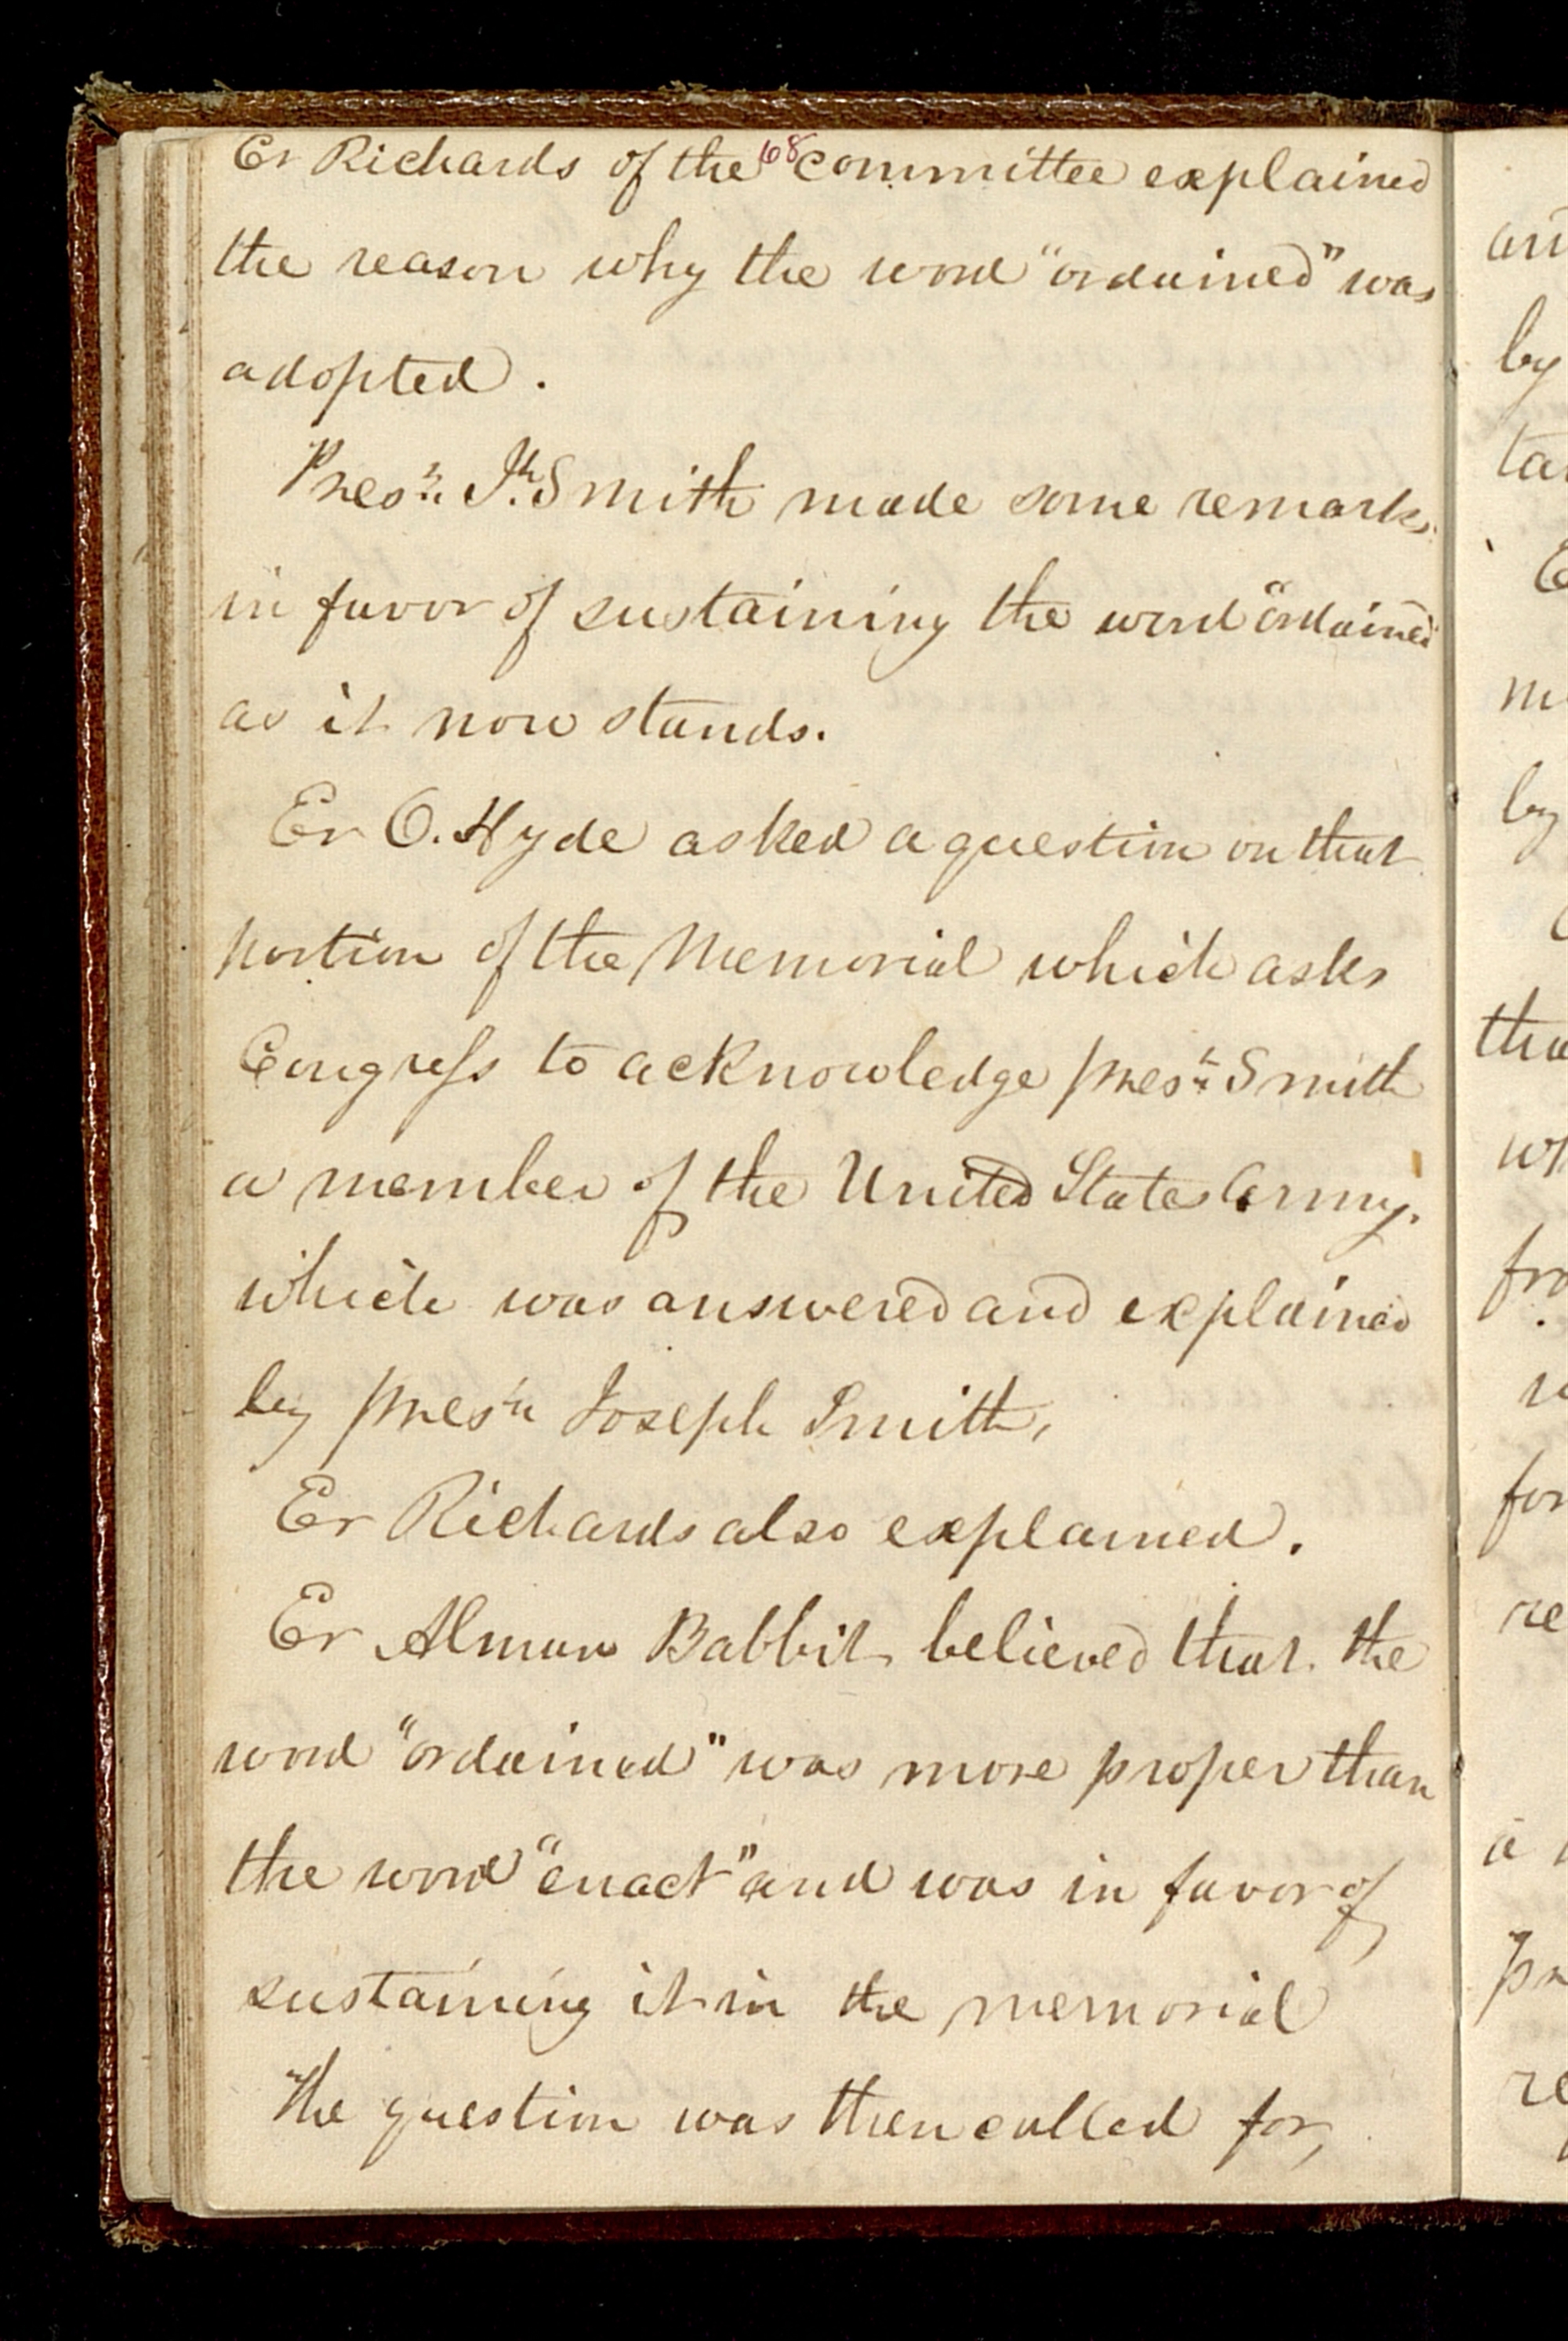 68
Er Richards of the committee explained
the reason why the word "ordained" was
adopted.
Pres.^t J.^h Smith made some remarks,
in favor of sustaining the word "ordained"
as it now stands.
Er O. Hyde asked a question on that
portion of the Memorial which asks
Congress to acknowledge pres.^t Smith
a member of the United States Army.
which was answered and explained
by pres^t Joseph Smith,
Er Richards also explained.
Er Almon Babbit believed that the
word "ordained" was more proper than
the word "enact" and was in favor of
sustaining it in the memorial
The question was then called for,
by
re